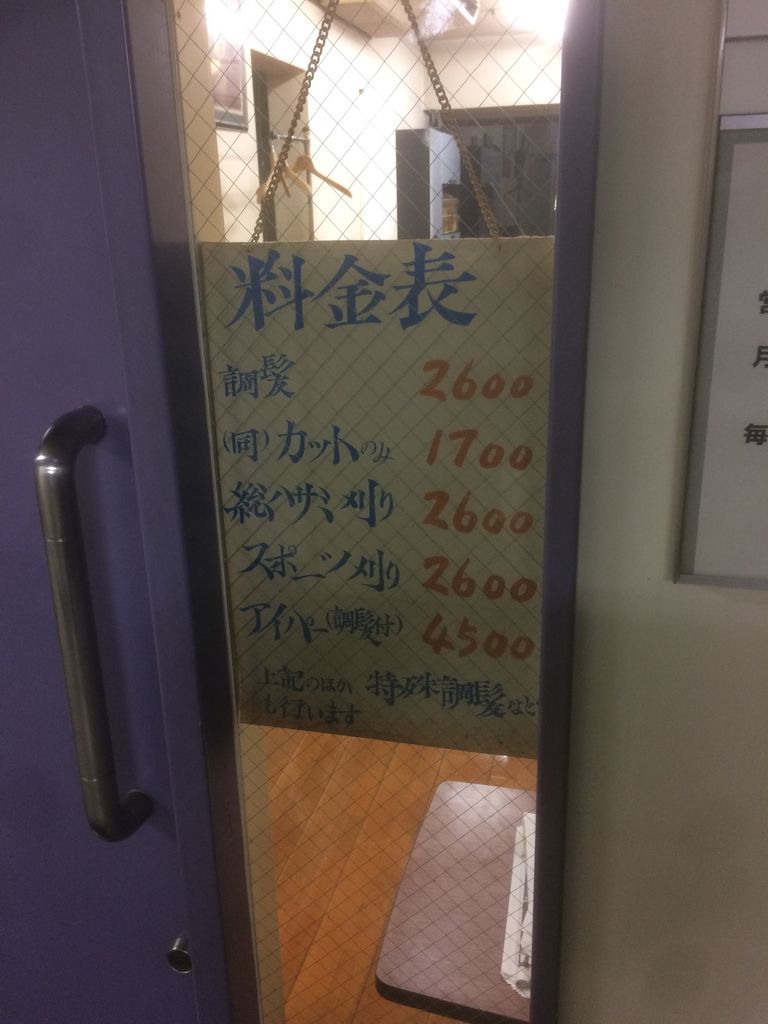 料金表
調髪 2600
(同)カットのみ 1700
総ハサミ刈り 2600
スポーツ刈り 2600
アイパー(調髪付) 4500
上記のほか 特殊調髪など
も行います
営
月
毎